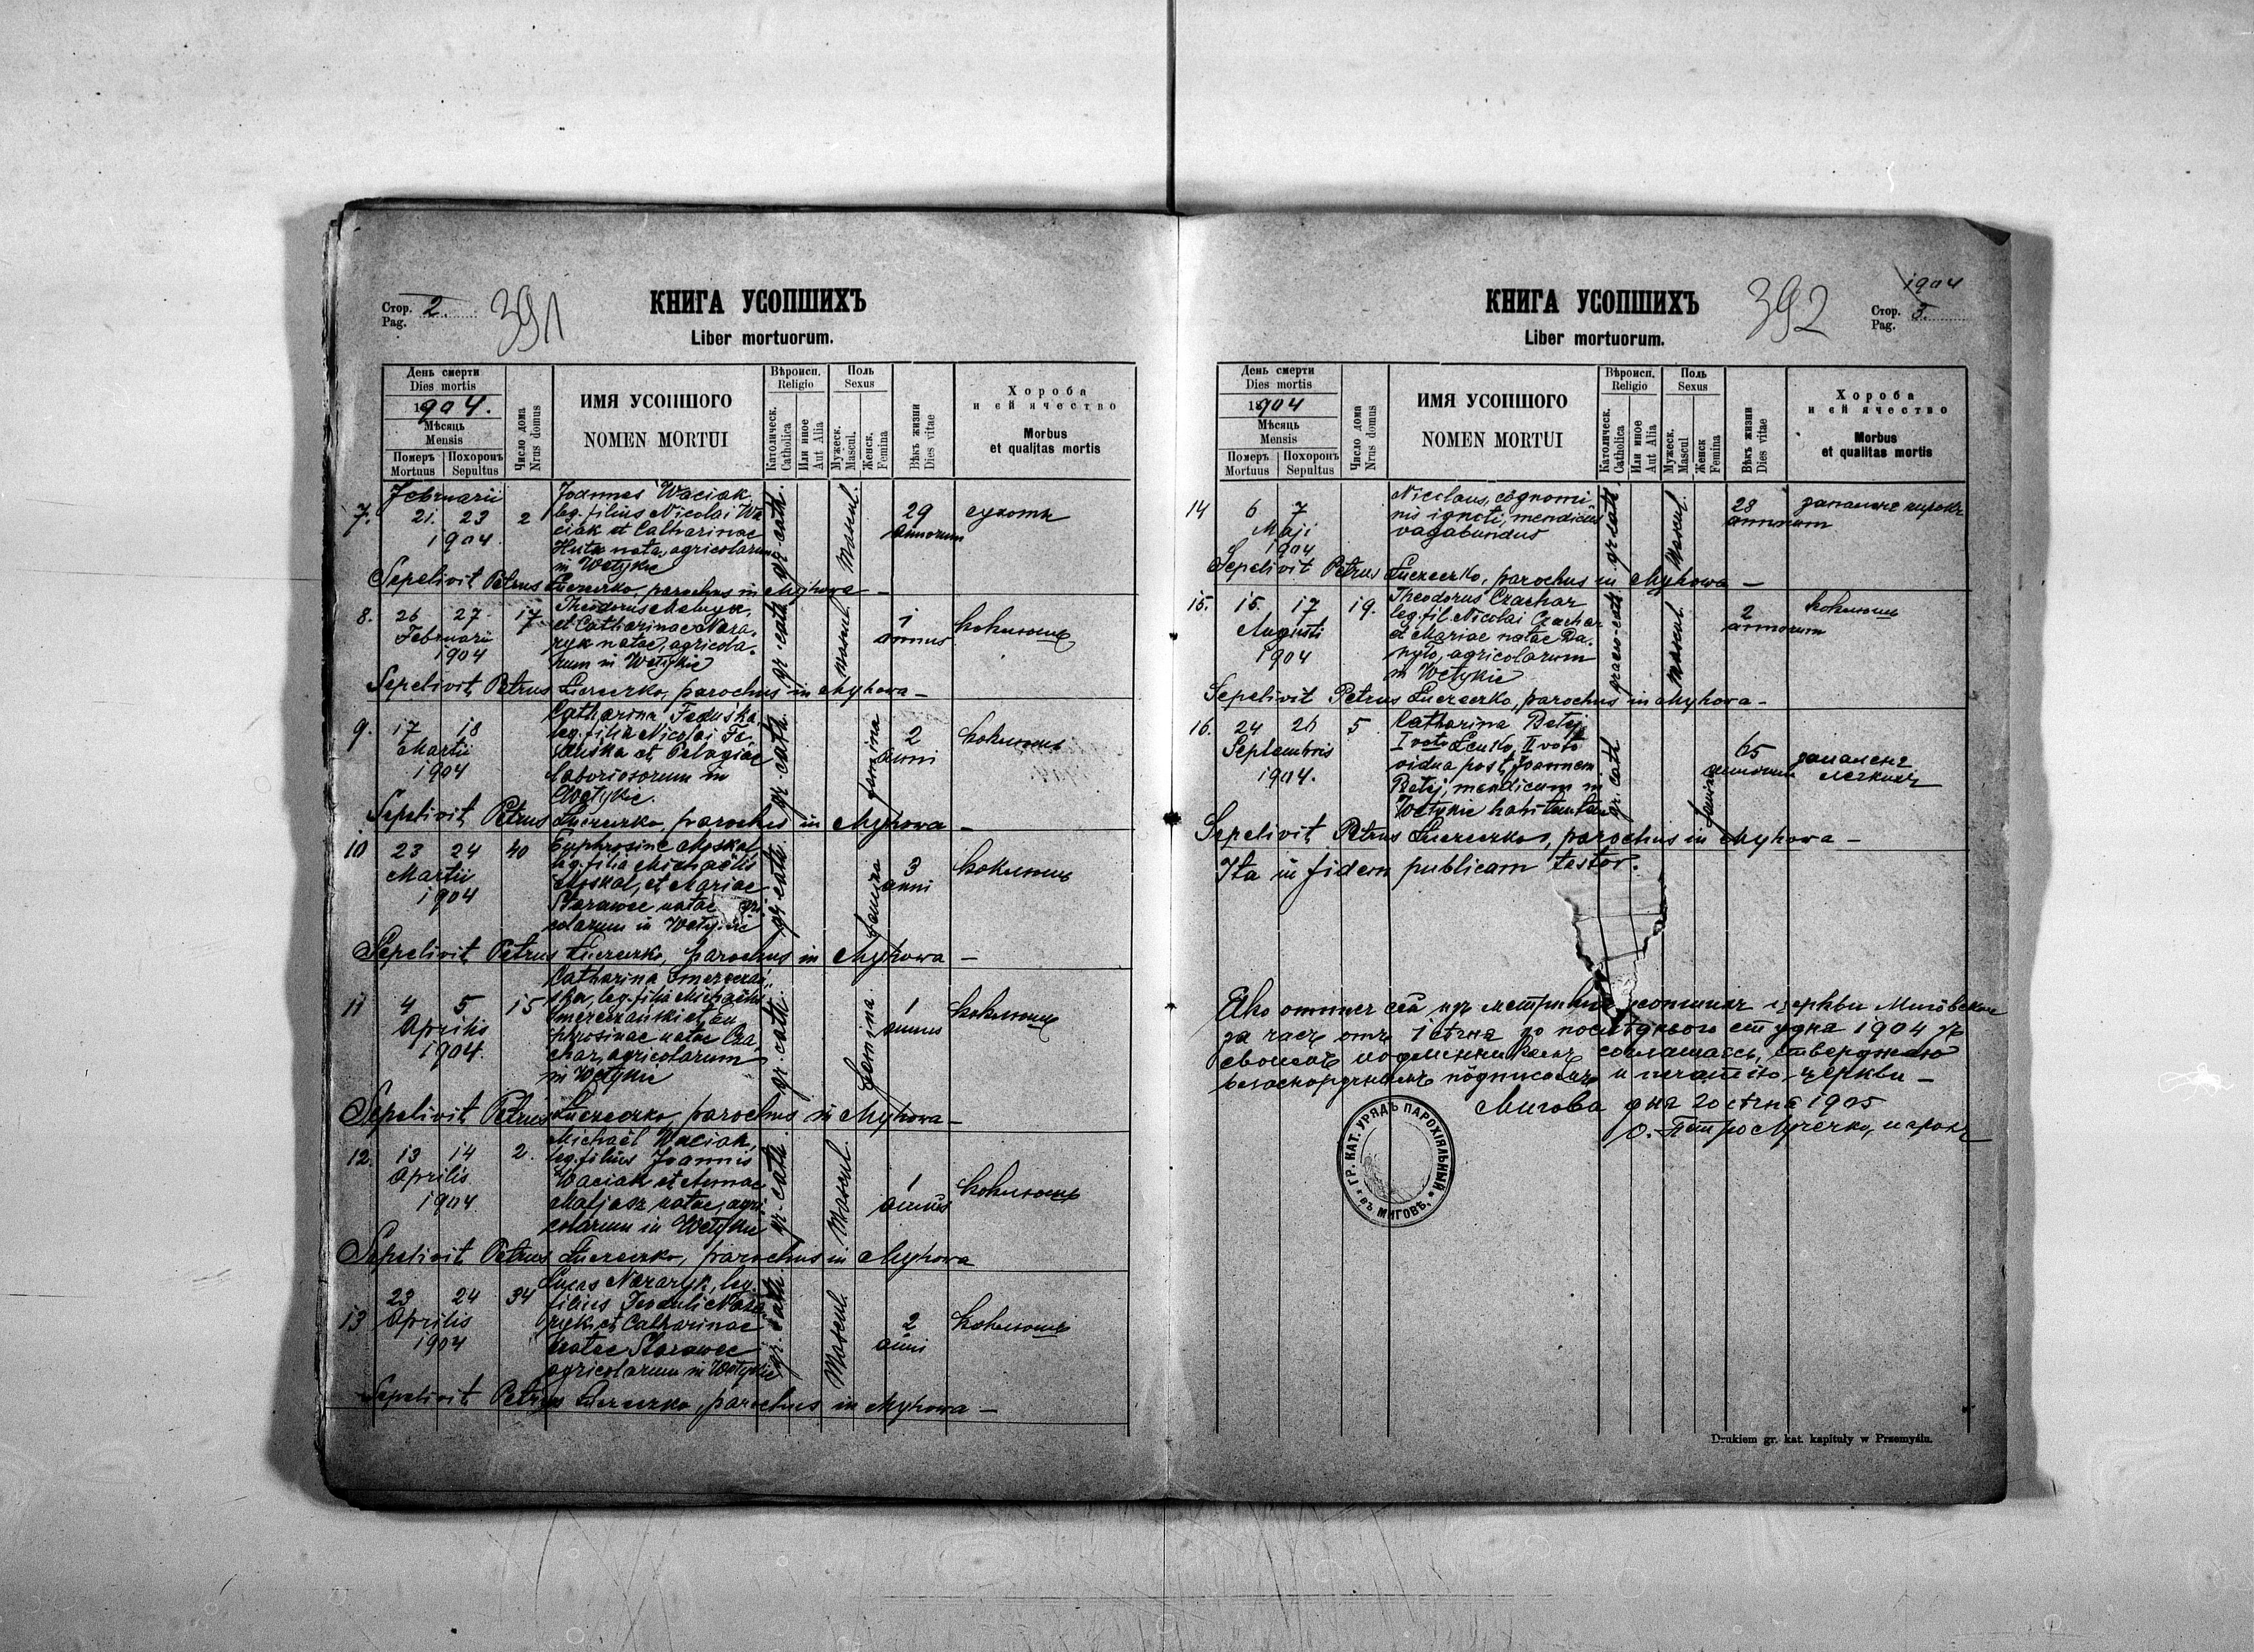 Стор. 2.
Pag.
391
КНИГА УСОПШИХЪ
Liber mortuorum.
День смерти
Dies mortis
1904.
Мѣсяць
Mensis
Померъ
Mortuus
Похоронъ
Sepultus
Число дома
Nrus domus
ИМЯ УСОПШОГО
NOMEN MORTUI
Вѣроисп.
Religio
Католическ.
Catholica
Или иное
Aut Alia
Поль
Sexus
Мужеск.
Mascul.
Женск.
Femina
Вѣкъ жизни
Dies vitae
Хороба
и ей ячество
Morbus
et qualitas mortis
7.
Februarii
21. 23
1904
2
Joannes Waciak,
leg. filius Nicolai Wa
ciak et Catharinae
Huta nata, agricolarum
in Wetykie
gr. cath.
Mascul.
29
annorum
сухоты
Sepelivit Petrus Łuczeczko, parochus in Myhowa –
8.
26 27
Februarii
1904
17
Theodorus
et Catharinae Naza,
ryk natae, agricola,
rum in Wetykie
gr. cath.
Mascul.
1
annus
коклюшъ
Sepelivit Petrus Łuczeczko, parochus in Myhowa –
9.
17 18
Martii
1904
Catharina Feduska,
leg. filia Nicolai Fe,
duska et Pelagiae
laboriosorum in
Wetykie.
gr. cath.
femina
2
anni
коклюшъ
Sepelivit Petrus Łuczeczko, parochus in Myhowa –
10
23 24
Martii
1904
40
Euphrosine Moskal
leg. filia Michaëlis
Moskal, et Mariae
Starawec natae
colarum in Wetykie
gr. cath.
femina
3
anni
коклюшъ
Sepelivit Petrus Łuczeczko, parochus in Myhowa –
11
4 5
Aprilis
1904.
15
Catharina
leg. filia Michaëlis
et Eu
phrosinae natae Cza,
char, agricolarum
in Wetykie
gr. cath.
femina.
1
annus
коклюшъ
Sepelivit Petrus Łuczeczko, parochus in Myhowa –
12.
13 14
Aprilis
1904
2.
Michaël Waciak,
leg. filius Joannis
Waciak et Annae
Matjasz natae, agri
colarum in Wetykie
gr. cath.
Mascul.
1
annus
коклюшъ
Sepelivit Petrus Łuczeczko, parochus in Myhowa
13
23 24
Aprilis
1904
34
Lucas Nazaryk, leg.
filius Naza
ryk et Catharinae
natae Starawec
agricolarum in Wetykie
gr. cath.
Mascul.
2
anni
коклюшъ
Sepelivit Petrus Łuczeczko, parochus in Myhowa –
КНИГА УСОПШИХЪ
Liber mortuorum.
392
1904
Стор. 3.
Pag.
День смерти
Dies mortis
18904
Мѣсяць
Mensis
Померъ
Mortuus
Похоронъ
Sepultus
Число дома
Nrus domus
ИМЯ УСОПШОГО
NOMEN MORTUI
Вѣроисп.
Religio
Католическ.
Catholica
Или иное
Aut Alia
Поль
Sexus
Мужеск.
Mascul
Женск
Femina
Вѣкъ жизни
Dies vitae
Хороба
и ей ячество
Morbus
et qualitas mortis
14
6 7
Maji
1904
Nicolaus, cognomi
nis ignoti, mendicus
vagabundus
gr cath.
Mascul.
28
annorum
запаленє нирокъ
Sepelivit Petrus Łuczeczko, parochus in Myhowa –
15.
15. 17
Augusti
1904
19.
Theodorus Czachar
leg. fil Nicolai Czachar
et Mariae natae Da,
nyło, agricolarum
in Wetykie
graeco-cath.
Mascul.
2
annorum
коклюшъ
Sepelivit Petrus Łuczeczko, parochus in Myhowa –
16.
24 26
Septembris
1904.
5
Catharina Betej
I voto Senko, II voto
vidua post Joannem
Betej, mendicum in
Wetykie habitantem
gr. cath
femina
65
annorum
запаленє
легкихъ
Sepelivit Petrus Łuczeczko, parochus in Myhowa –
Ita in fidem publicam testor.
Яко отпис сей изъ метрики усопших церкви Миговскои
за часъ отъ 1 сѣчня до послѣдного студня 1904 зъ
своимъ подлинникомъ соглашаєсь, стверджаю
власноручнымъ подписомъ и печатію церкви –
Мигова дня 20 сѣчня 1905
О. Петро Лучечко, парохъ
ГР. КАТ. УРЯДЪ ПАРОХІЯЛЬНЫЙ
* ВЪ МИГОВѢ. *
Drukiem gr. kat. kapituły w Przemyślu.